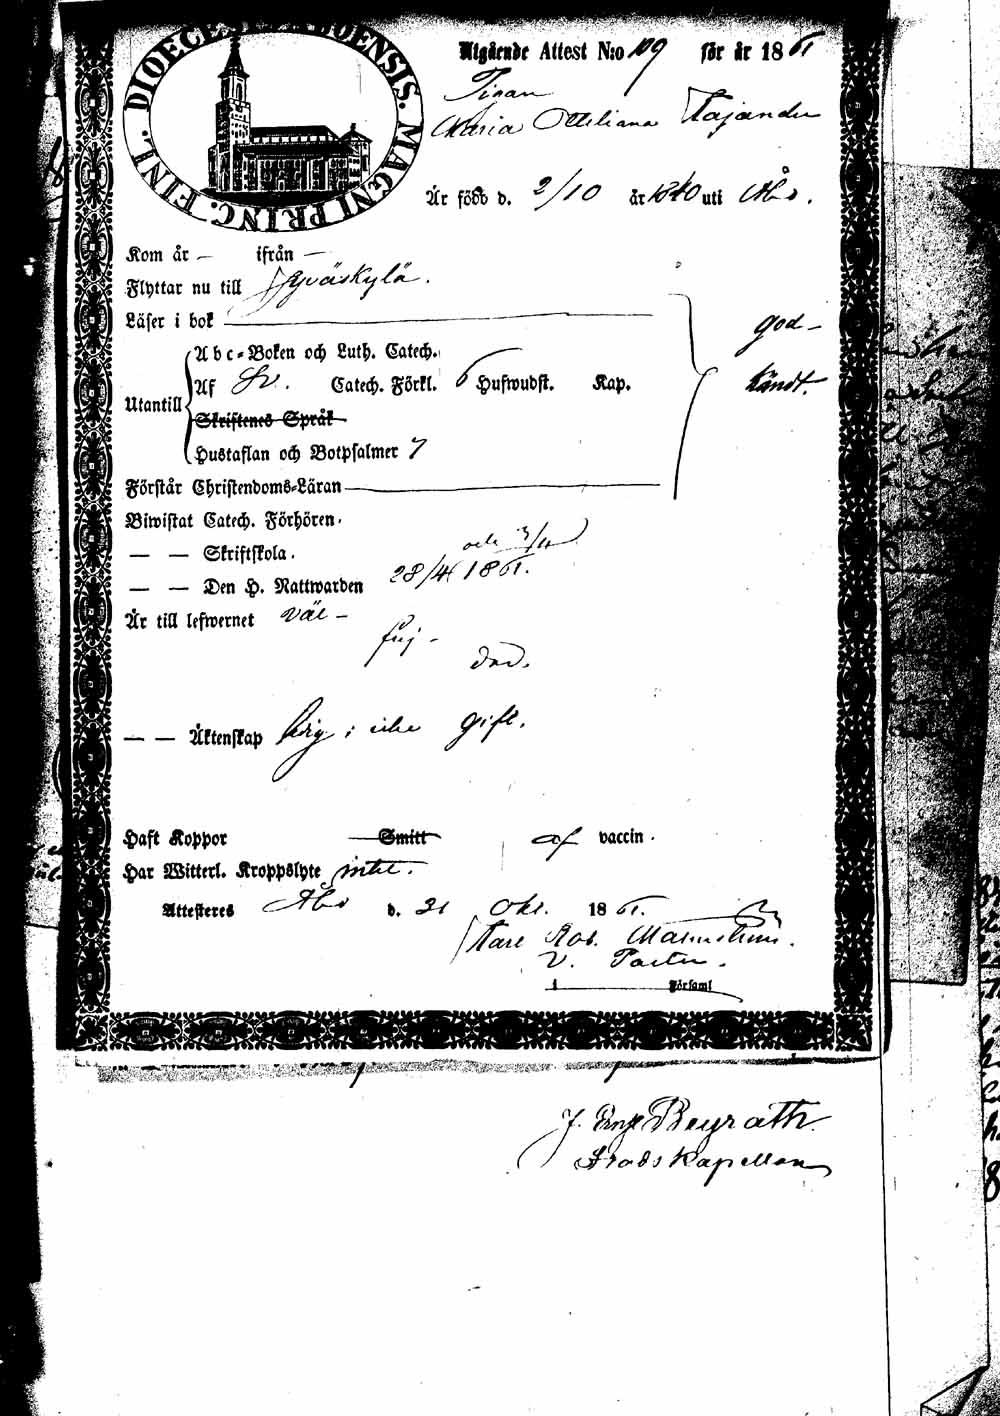 DIOECES. ABOENSIS. MAGNI PRINC. FINL.
Utgående Attest N:o 109 för år 1861
Pigan
Maria Ottiliana Kajander
Är född d. 2/10 år 1840 uti Åbo.
Kom år — ifrån —
Flyttar nu till Jyväskylä.
Läser i bok
Abc-Boken och Luth. Catech.
Utantill Af Sv. Catech. Förkl. 6 Hufwudst. Kap.
Skriftenes Språk
Hustaflan och Botpsalmer 7
god-
kändt.
Förstår Christendoms-Läran
Biwistat Catech. Förhören.
— — Skriftskola.
och 3/11
— — Den H. Nattwarden 28/4 1861.
Är till lefwernet väl-
frej-
dad.
— — Äktenskap ledig; icke gift.
Haft Koppor Smitt af vaccin.
Har Witterl. Kroppslyte intet.
Attesteres Åbo d. 31 Okt. 1861.
Karl Rob. Malmström.
V. Pastor.
Församl
J. Ernst Beyrath.
Stadskapellan